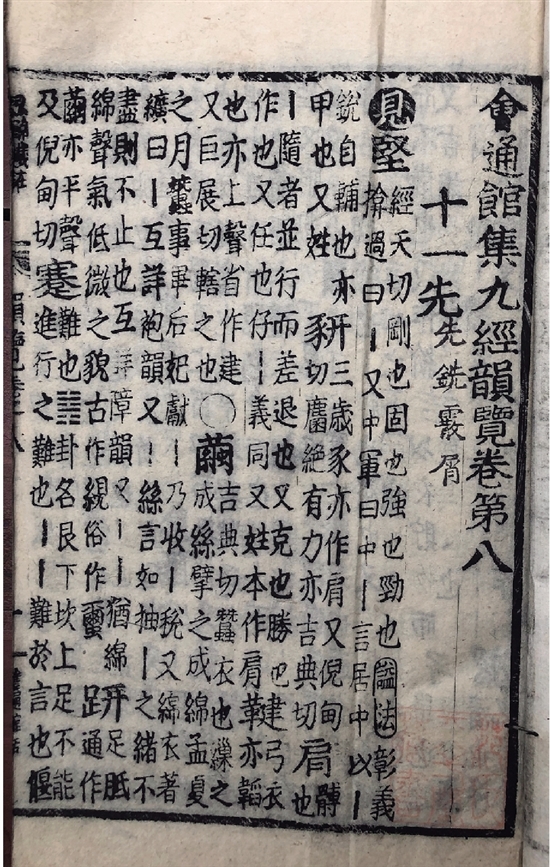 會通館集九經韻覽卷第八
十一先 先銑霰屑
見 堅 經天切剛也固也強也勁也謚法彰義
揜過曰丨又中軍曰中丨言居中以丨
銳自輔也亦 豜 三歲豕亦作肩又倪甸
甲也又姓 豕切麕絕有力亦吉典切 肩 髆也
丨隨者並行而差退也又克也勝也 建 弓衣
作也又任也仔丨義同又姓本作肩革亦韜
也亦上聲省作建 〇 繭 吉典切蠶衣也繅之
又巨展切轄之也 成絲擘之成綿孟夏
之月蠶事畢后妃獻丨乃收丨稅又綿衣著
纊曰丨互詳袍韻又丨絲言如抽丨之緒不
盡則不止也互詳障韻又丨丨猶綿
綿聲氣低微之貌古作絸俗作蠒 趼 足胝 通作
繭亦平聲 蹇 難也䷦卦名艮下坎上足不能
及倪甸切 進行之難也丨丨難於言也偃